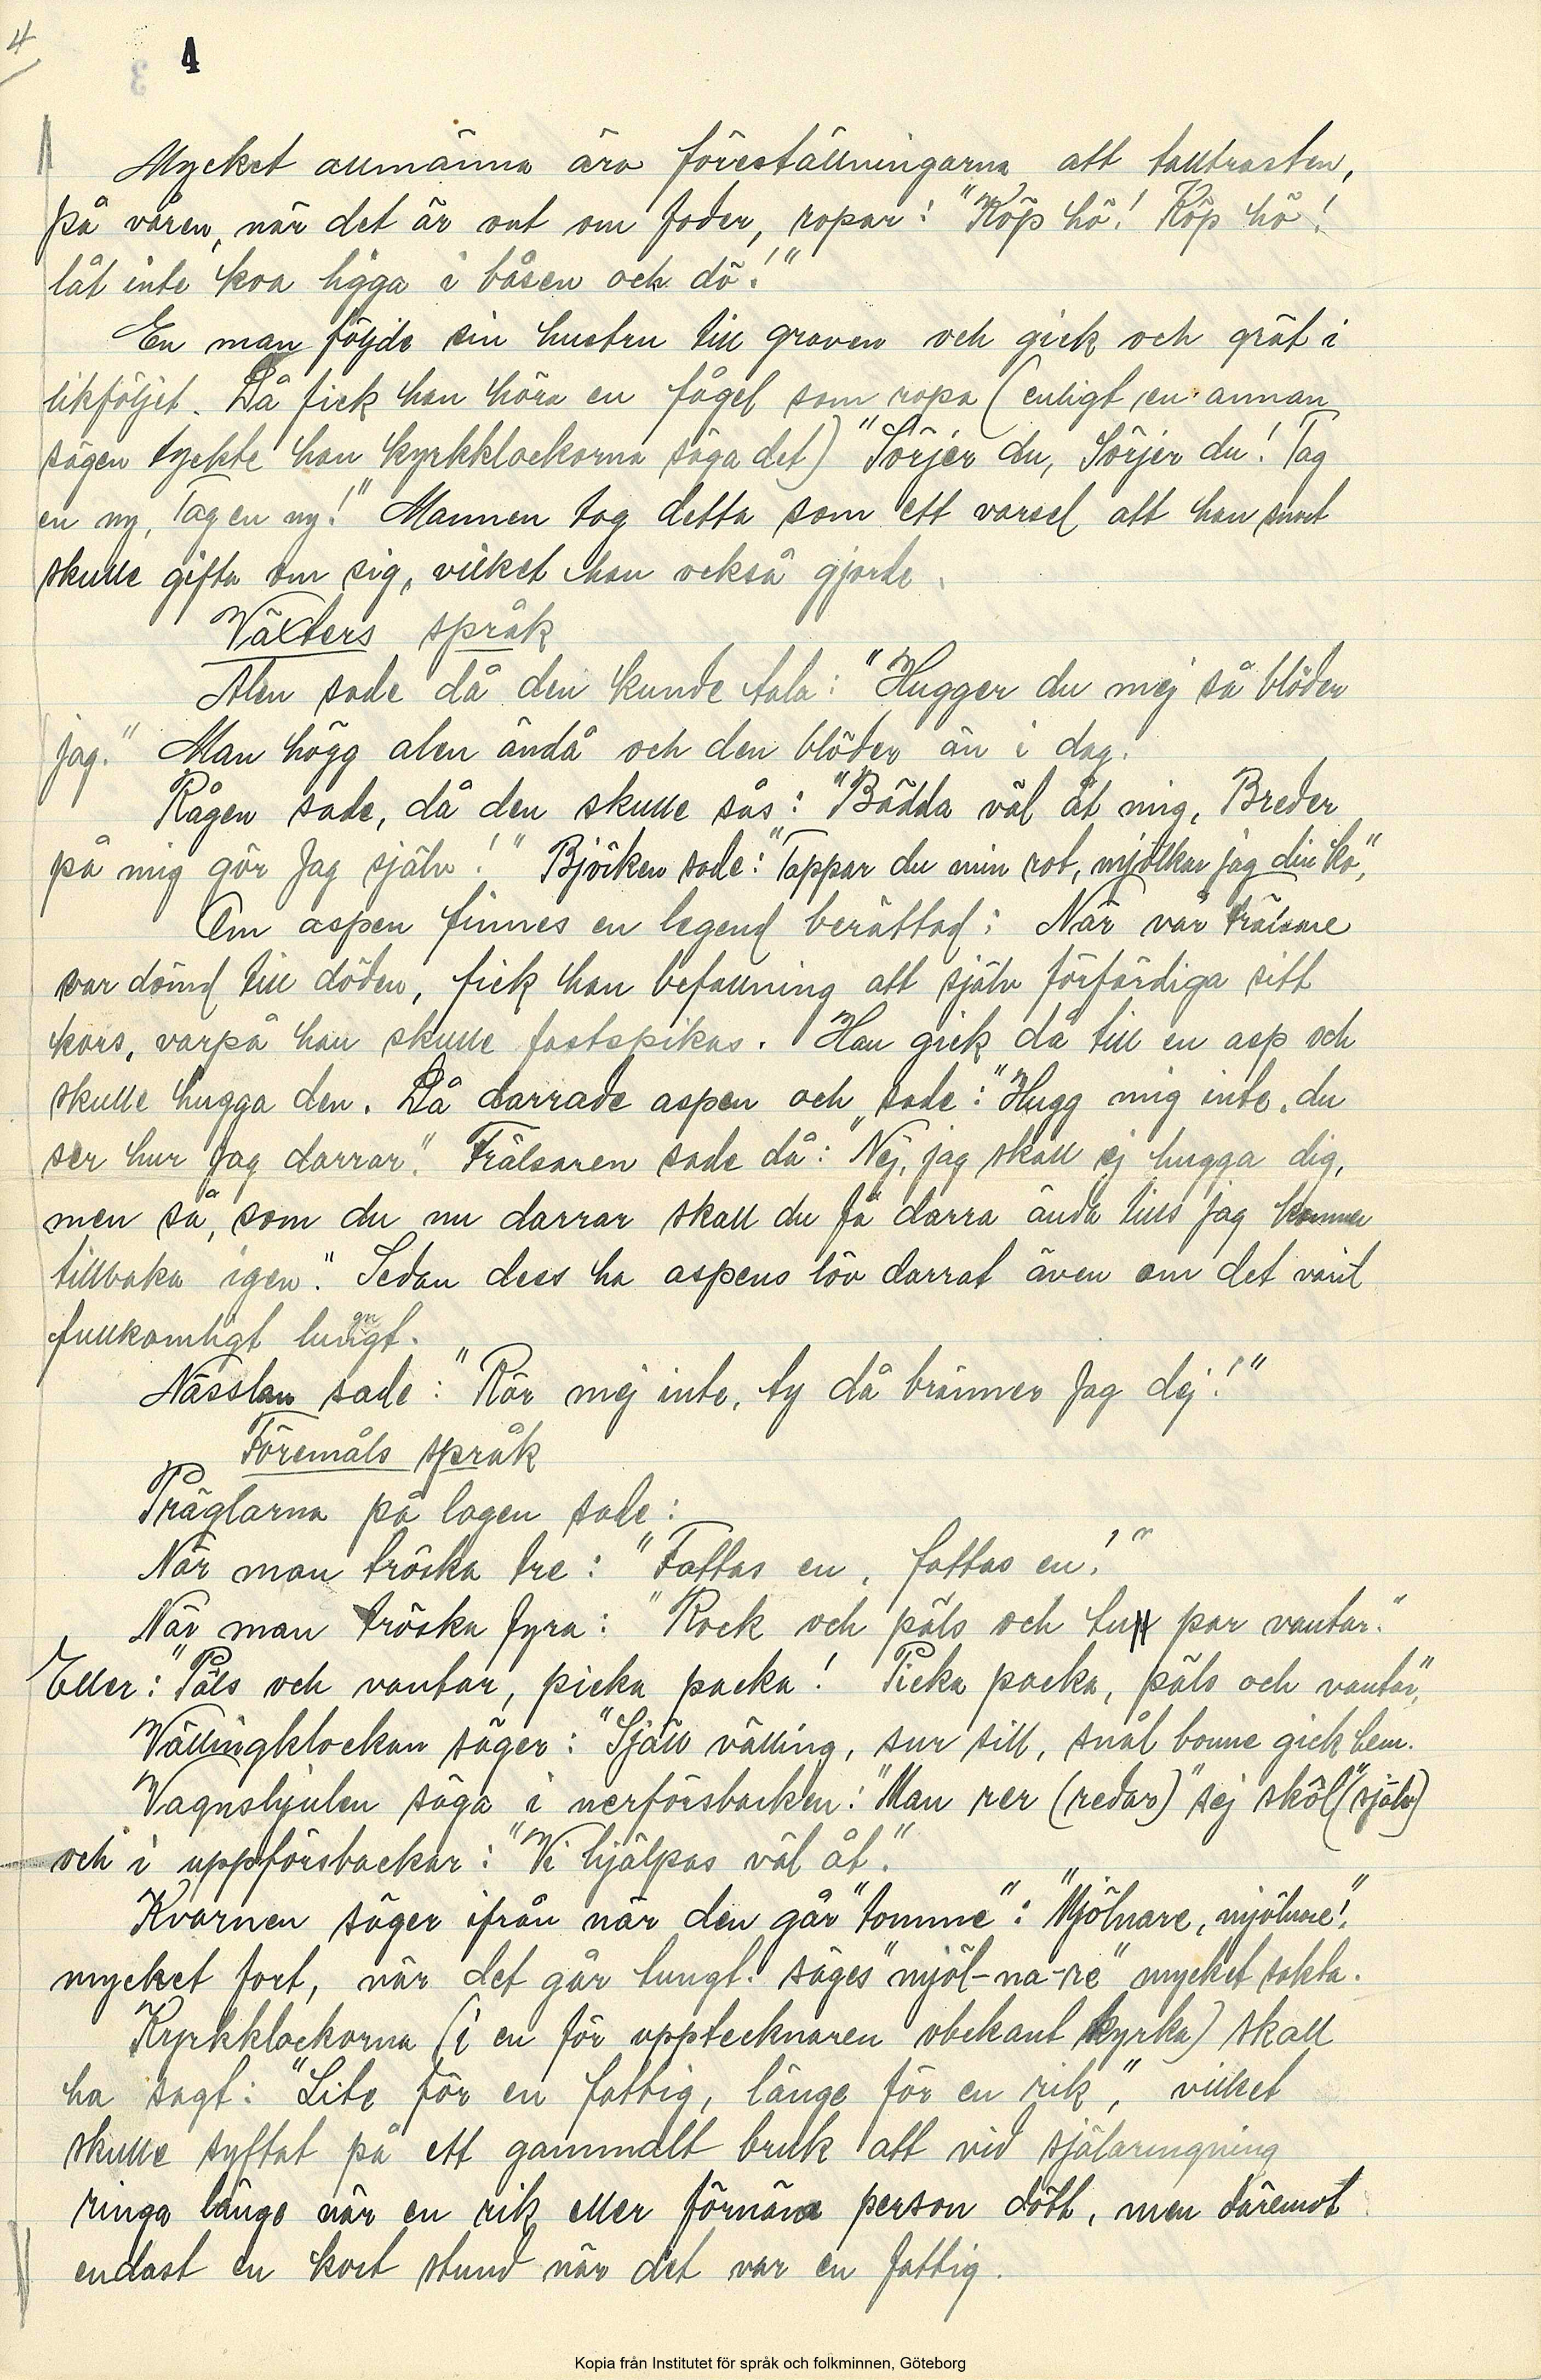 4
4
3
Mycket allmänna äro föreställningarna att talltrasten,
på våren, när det är ont om foder, ropar: "Köp hö! Köp hö!
låt inte koa ligga i båsen och dö!"
En man följde sin hustru till graven och gick och grät i
likföljet. Då fick han höra en fågel som ropa (enligt en annan
sägen tyckte han kyrkklockorna säga det) "Sörjer du, Sörjer du! Tag
en ny, Tag en ny!" Mannen tog detta som ett varsel att han snart
skulle gifta om sig, vilket han också gjorde.
Växters språk
Alen sade då den kunde tala: "Hugger du mej så blöder
jag." Man högg alen ändå och den blöder än i dag.
Rågen sade, då den skulle sås: "Bädda väl åt mig, Breder
på mig gör jag själv!" Björken sade: "Tappar du min rot, mjölkar jag din ko",
Om aspen finnes en legend berättad: När vår Frälsare
var dömd till döden, fick han befallning att själv förfärdiga sitt
kors, varpå han skulle fastspikas. Han gick då till en asp och
skulle hugga den. Då darrade aspen och sade: "Hugg mig inte, du
ser hur jag darrar". Frälsaren sade då: "Nej, jag skall ej hugga dig,
men så, som du nu darrar skall du få darra ända tills jag kommer
tillbaka igen". Sedan dess ha aspens löv darrat även om det varit
fullkomligt lungt.
gn
Nässlan sade: "Rör mej inte, ty då bränner jag dej!"
Föremåls språk
Präglarna på logen sade:
När man tröska tre: "Fattas en, fattas en!"
När man tröska fyra: "Rock och päls och tu par vantar."
Eller: "Päls och vantar, picka packa! Picka packa, päls och vantar",
Vällingklockan säger: "Själl välling, sur sill, snål bonne gick hem.
Vagnshjulen säga i nerförsbacken: "Man rer (redar)" sej sköl" (själv)
och i uppförsbackar: "Vi hjälpas väl åt."
Kvarnen säger ifrån när den går "tomme": "Mjölnare, mjölnare!",
mycket fort, när det går tungt: säges "mjöl-na-re" mycket sakta.
Kyrkklockorna (i en för upptecknaren obekant kyrka) skall
ha sagt: "Lite för en fattig, länge för en rik", vilket
skulle syftat på ett gammalt bruk att vid själaringning
ringa länge när en rik eller förnäm person dött, men däremot
endast en kort stund när det var en fattig.
Kopia från Institutet för språk och folkminnen, Göteborg